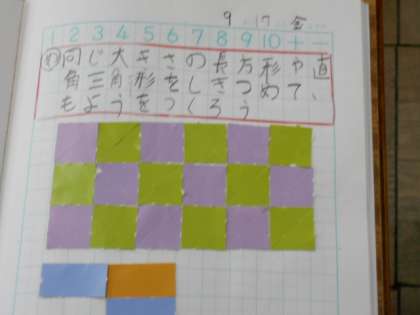 9.17.金
1 2 3 4 5 6 7 8 9 10 + −
め 同じ大きさの長方形や直
角三角形をしきつめて、
もようをつくろう